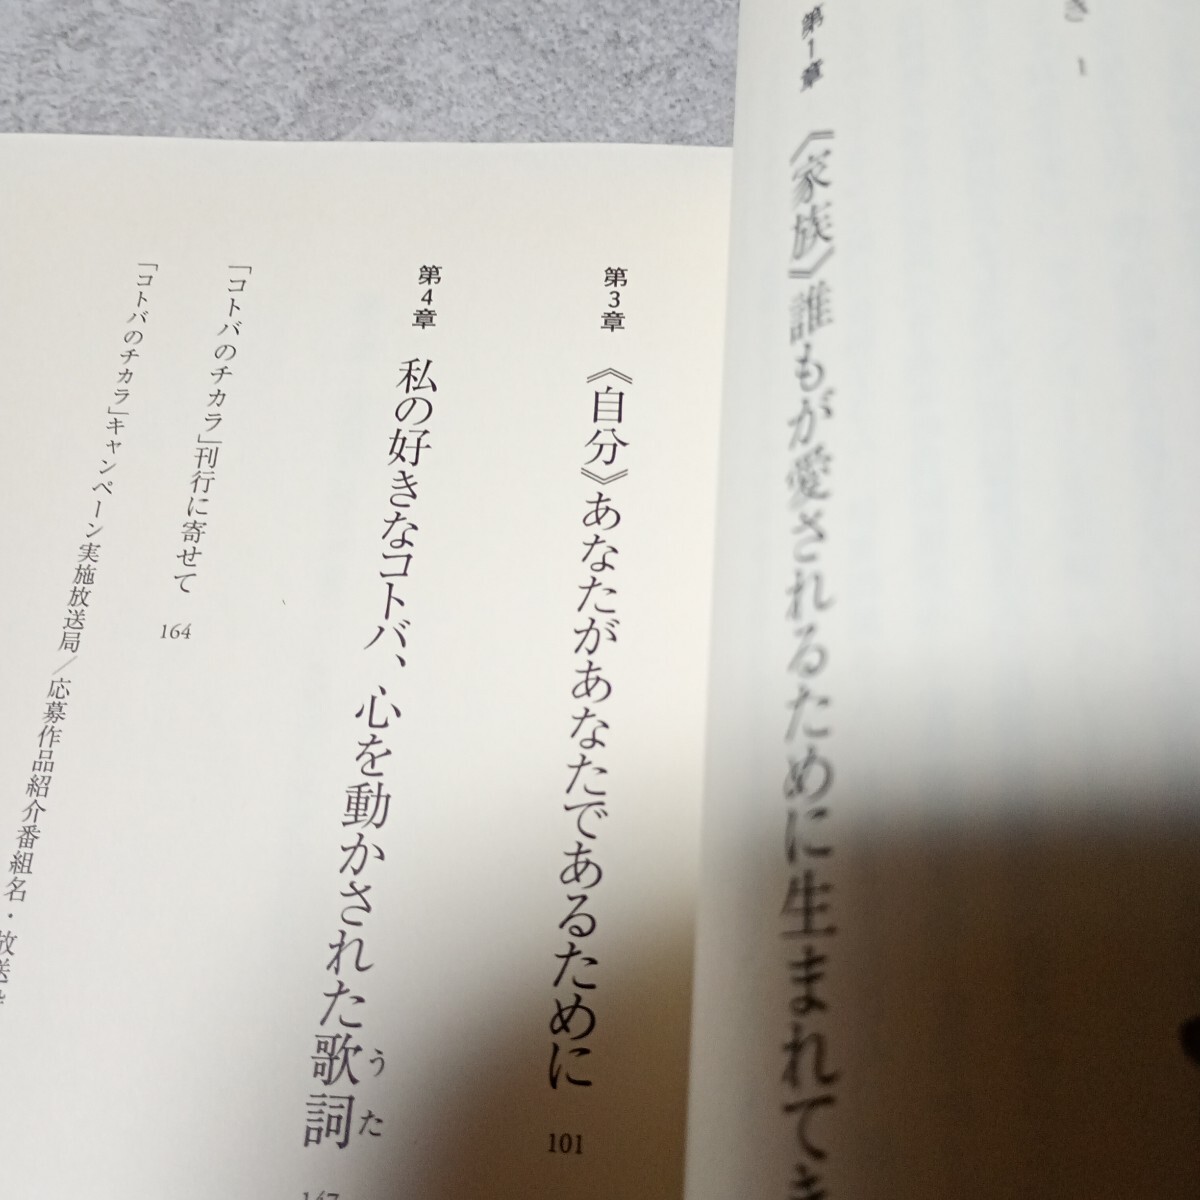 き 1
第1章 《家族》誰もが愛されるために生まれてき
第3章 《自分》あなたがあなたであるために 101
第4章 私の好きなコトバ、心を動かされた歌詞 147
うた
「コトバのチカラ」刊行に寄せて 164
「コトバのチカラ」キャンペーン実施放送局/応募作品紹介番組名・放送